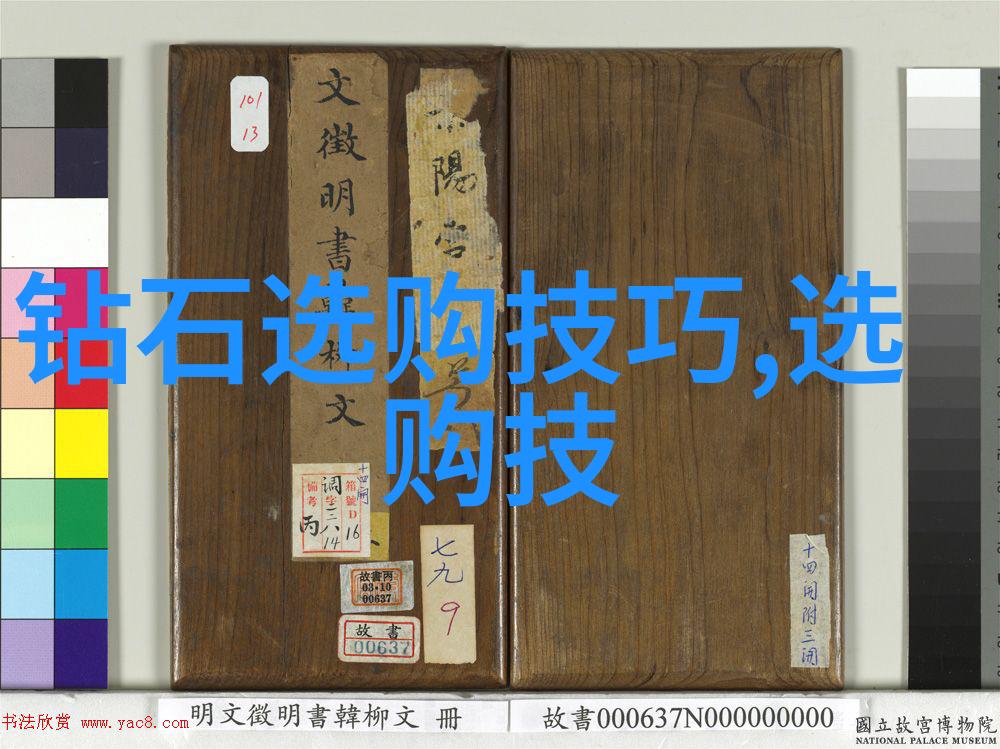 钻石选购技巧,选
购技
101
13
文徵明書韓柳文
陽
十四開
備考
調字
三
八
14
丙
箱號D
16
故書丙
03·10
00637
故書
00637
七九
9
十四開附三開
明文徵明書韓柳文 冊
故書000637N000000000
書法欣赏 www.yac8.com
國立故宮博物院
NATIONAL PALACE MUSEUM